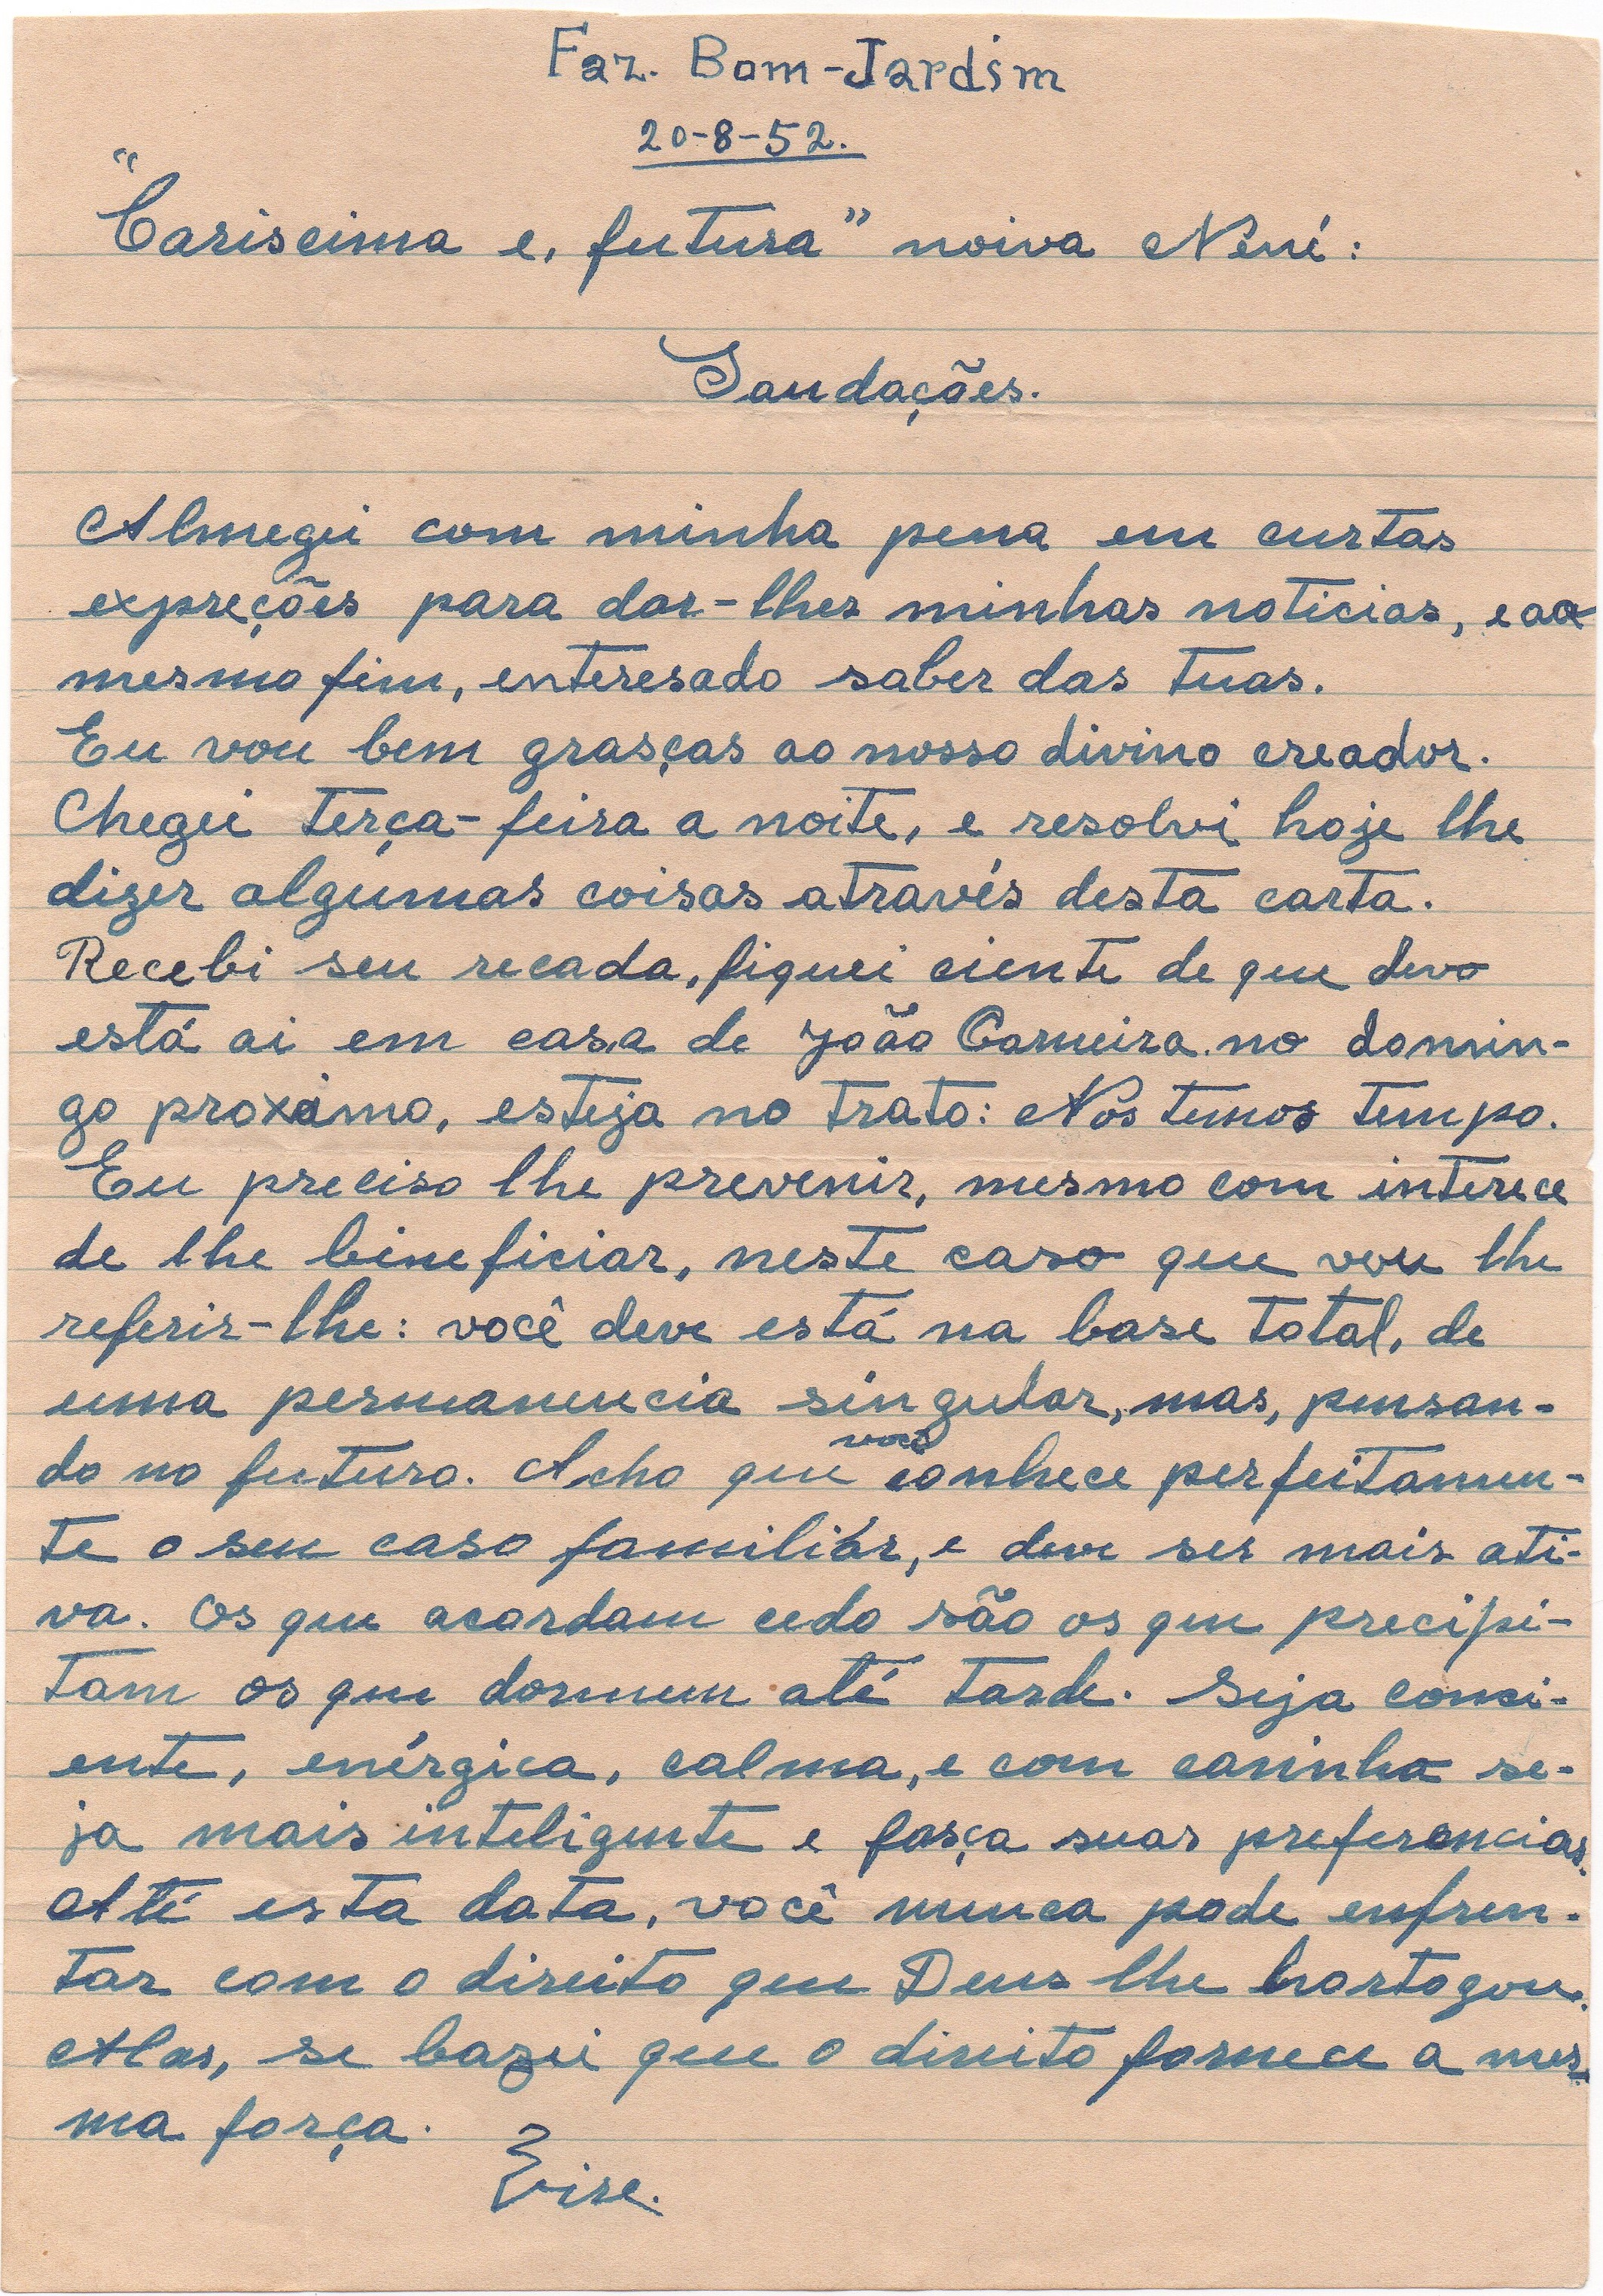 Faz. Bom-Jardim
20-8-52.
"Cariscima e, futura" noiva Nêné:
Saudações.
Almegei com minha pena em curtas
expreções para dar-lhes minhas noticias, e ao
mesmo fim, enteresado saber das tuas.
Eu vou bem grasças ao nosso divino creador.
Chegei terça-feira a noite, e resolvi hoje lhe
dizer algumas coisas através desta carta.
Recebi seu recado, fiquei ciente de que devo
está ai em casa de João Carneiro no domin-
go proximo, esteja no trato: Nós temos tempo.
Eu preciso lhe prevenir, mesmo com interece
de lhe bineficiar, neste caso que vou lhe
referir-lhe: você deve está na base total, de
uma permanencia singular, mas, pensan-
do no futuro. Acho que você conhece perfeitamen-
te o seu caso familiár, e deve ser mais ati-
va. Os que acordam cedo são os que precipi-
tam os que dormem até tarde. Seja consi-
ente, enérgica, calma, e com carinho se-
ja mais inteligente e fasça suas preferencias.
Até esta data, você nunca pode enfren-
tar com o direito que Deus lhe hortogou.
Mas, se bazei que o direito fornece a mes-
ma força.
Vire.